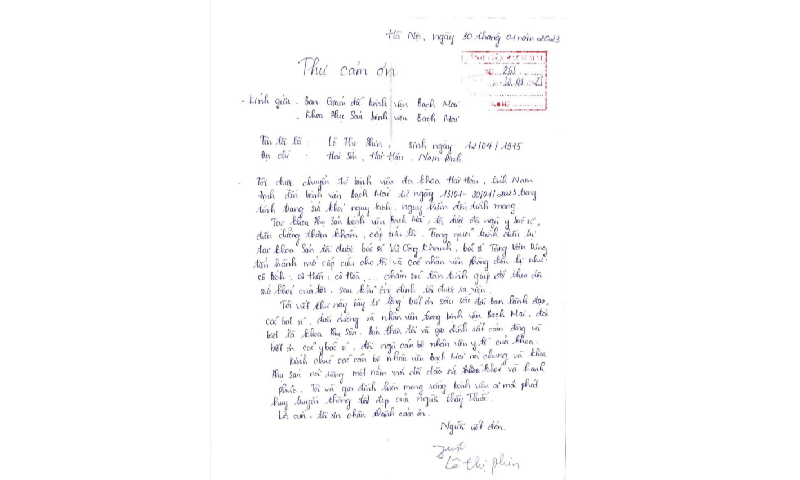 Hà Nội, ngày 30 tháng 01 năm 2023
Thư cảm ơn
Kính gửi: - Ban Giám đốc bệnh viện Bạch Mai
- Khoa Phụ Sản bệnh viện Bạch Mai
261
Tên tôi là: Lê Thị Phin, sinh ngày 12/04/1975
Địa chỉ: Hải Hậu, Nam Định
Tôi được chuyển từ bệnh viện đa khoa Hải Hậu, tỉnh Nam
Định đến bệnh viện Bạch Mai từ ngày 2023 trong
tình trạng sức khoẻ nguy kịch, nguy hiểm đến tính mạng
Tại khoa Phụ Sản bệnh viện Bạch Mai, tôi được đội ngũ y bác sĩ,
điều dưỡng thăm khám, cấp cứu. Trong quá trình điều trị
tại khoa Sản tôi được bác sĩ Vũ Công Khanh, bác sĩ
tiến hành mổ cấp cứu cho tôi và các nhân viên như
cô cô cô Hoà, ... chăm sóc tận tình giúp đỡ theo dõi
sức khoẻ của tôi, sau khi ổn định tôi được ra viện.
Tôi viết thư này bày tỏ lòng biết ơn sâu sắc đến ban lãnh đạo,
các bác sĩ, điều dưỡng và nhân viên trong bệnh viện Bạch Mai, đặc
biệt là khoa Phụ Sản. Bản thân tôi và gia đình rất cảm động và
biết ơn các y bác sĩ, đội ngũ cán bộ nhân viên y tế của khoa.
Kính chúc các cán bộ nhân viên Bạch Mai nói chung và khoa
Phụ sản nói riêng một năm mới dồi dào sức khoẻ và hạnh
phúc. Tôi và gia đình luôn mong rằng bệnh viện sẽ mãi phát
huy truyền thống tốt đẹp của người thầy Thuốc.
Lời cuối, tôi xin chân thành cảm ơn.
Người viết đơn.
Lê Thị Phin